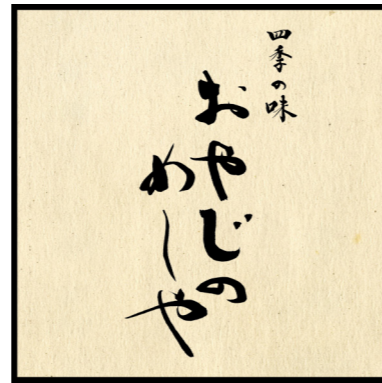 四季の味
おやじの
めしや